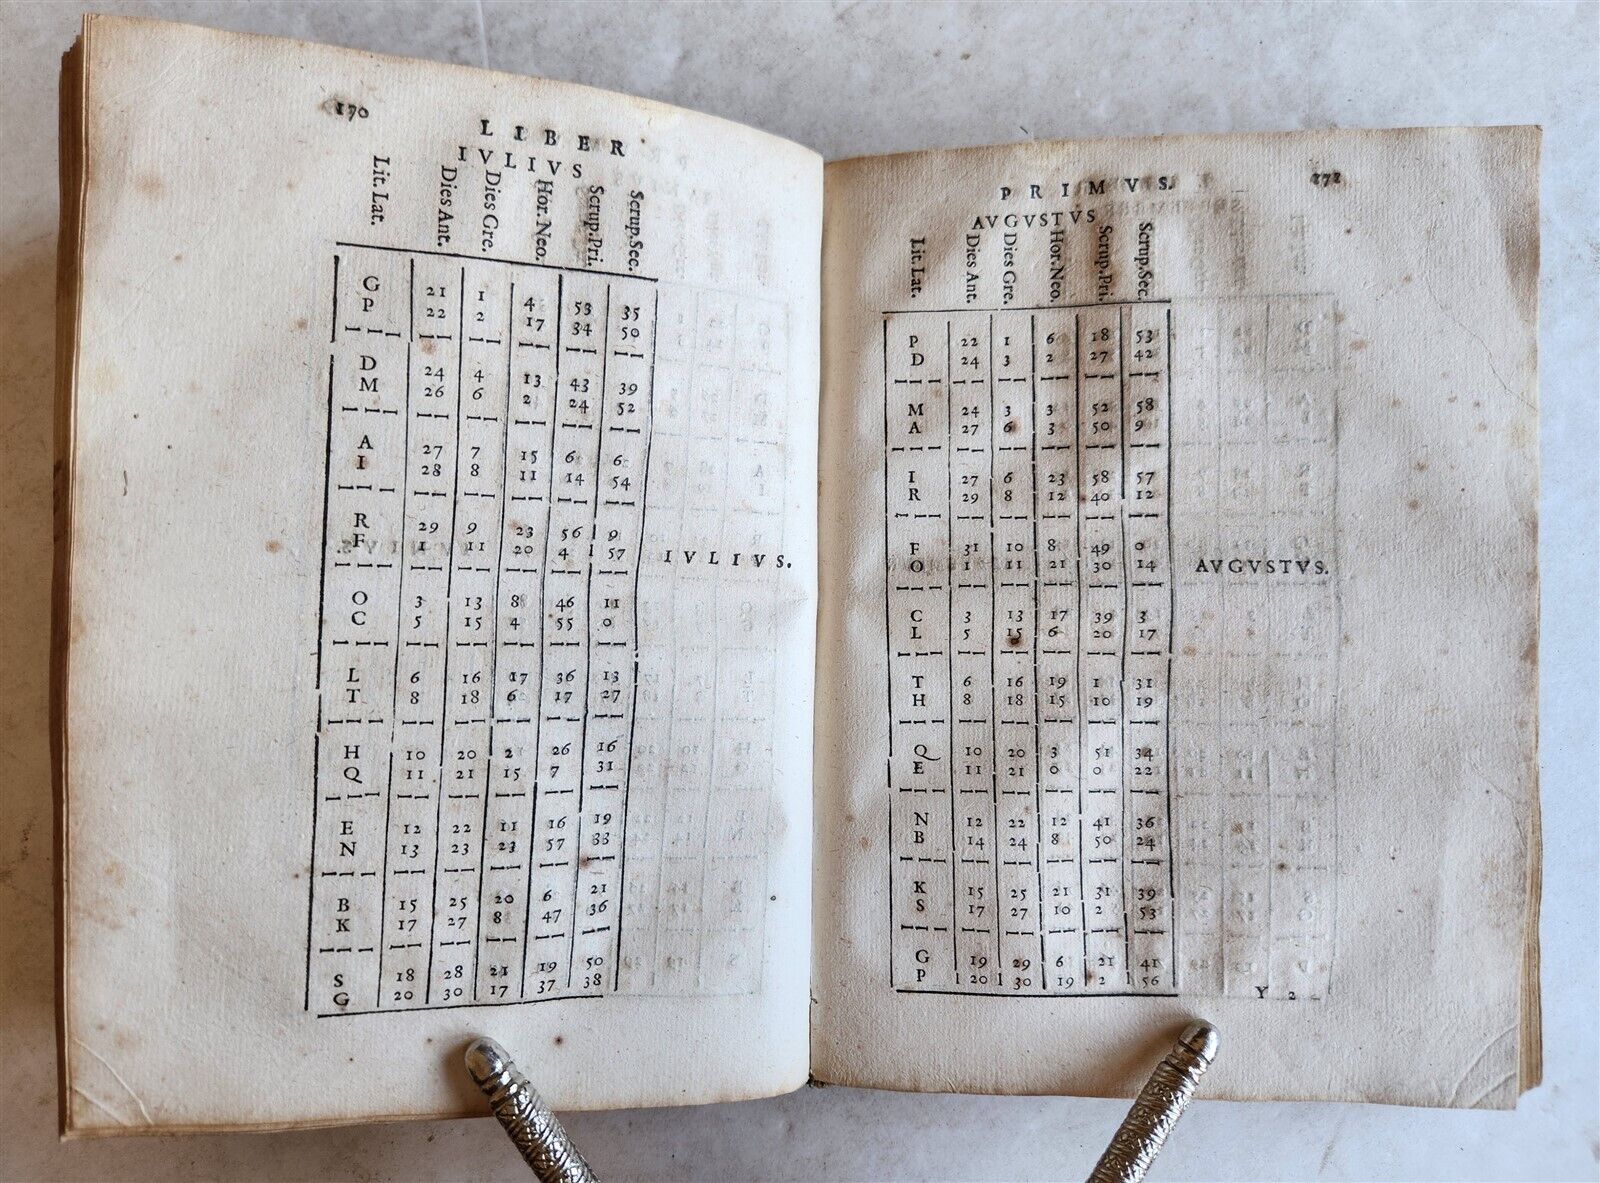 170
LIBER
IVLIVS
Lit. Lat. Dies Ant. Dies Gre. Hor. Neo. Scrup. Pri. Scrup. Sec.
G 21 1 4 53 35
P 22 2 17 34 50
D 24 4 13 43 39
M 26 6 2 24 52
A 27 7 15 6 6
I 28 8 11 14 54
R 29 9 23 56 9
F 1 11 20 4 57
IVLIVS.
O 3 13 8 46 11
C 5 15 4 55 0
L 6 16 17 36 13
T 8 18 6 17 27
H 10 20 2 26 16
Q 11 21 15 7 31
E 12 22 11 16 19
N 13 23 23 57 33
B 15 25 20 6 21
K 17 27 8 47 36
S 18 28 21 19 50
G 20 30 17 37 38
PRIMVS.
AVGVSTVS
Lit. Lat. Dies Ant. Dies Gre. Hor. Neo. Scrup. Pri. Scrup. Sec.
P 22 1 6 18 53
D 24 3 2 27 42
M 24 3 3 52 58
A 27 6 3 50 9
I 27 6 23 58 57
R 29 8 12 40 12
F 31 10 8 49 0
O 1 11 21 30 14
AVGVSTVS.
C 3 13 17 39 3
L 5 15 6 20 17
T 6 16 19 1 31
H 8 18 15 10 19
Q 10 20 3 51 34
E 11 21 0 0 22
N 12 22 12 41 36
B 14 24 8 50 24
K 15 25 21 31 39
S 17 27 10 2 53
G 19 29 6 21 41
P 20 30 19 2 56
Y 2